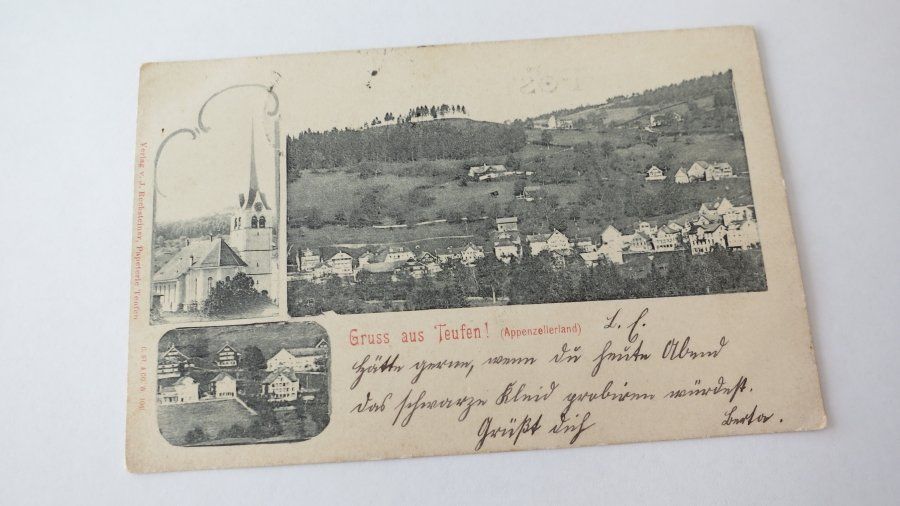 Verlag v. J. Rechsteiner, Papeterie Teufen.
Gruss aus Teufen! (Appenzellerland)
L. E.
Hätte gerne, wenn du heute Abend
das schwarze Kleid probiren würdest.
Grüßt dich
Berta.